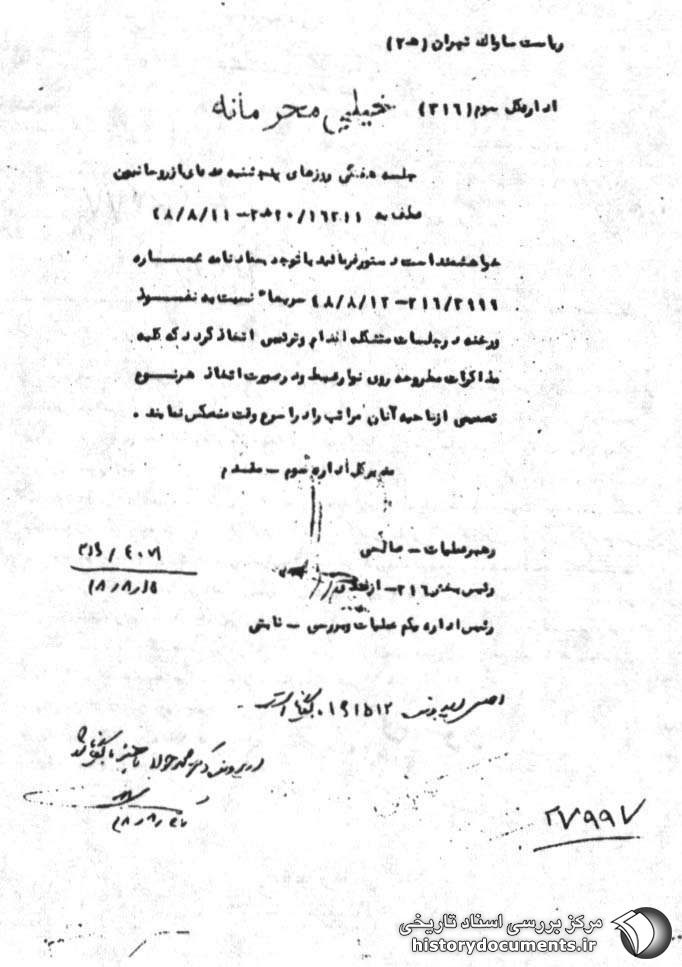 ریاست ساواک تهران (هـ۲)
اداره کل سوم (۳۱۶) خیلی محرمانه
جلسه هفتگی روزهای پنجشنبه عده‌ای از روحانیون
عطف به ۱۶۲۱۱/۲۰هـ۲ـ ۴۸/۸/۱۱
خواهشمند است دستور فرمائید با توجه بمفاد نامه شماره
۳۱۶/۲۹۹۹ـ ۴۸/۸/۱۲ سریعا" نسبت به نفوذ
ورخنه در جلسات متشکله اقدام و ترتیبی اتخاذ گردد که کلیه
مذاکرات مطروحه روی نوار ضبط و در صورت اتخاذ هر نوع
تصمیمی از ناحیه آنان مراتب را در اسرع وقت منعکس نمایند .
مدیر کل اداره سوم ـ مقدم
رهبر عملیات ـ صالحی
رئیس بخش ۳۱۶ـ
رئیس اداره یکم عملیات و بررسی ـ ثابتی
اصل در پرونده
در پرونده
۲۷۹۹۷
مرکز بررسی اسناد تاریخی
historydocuments.ir